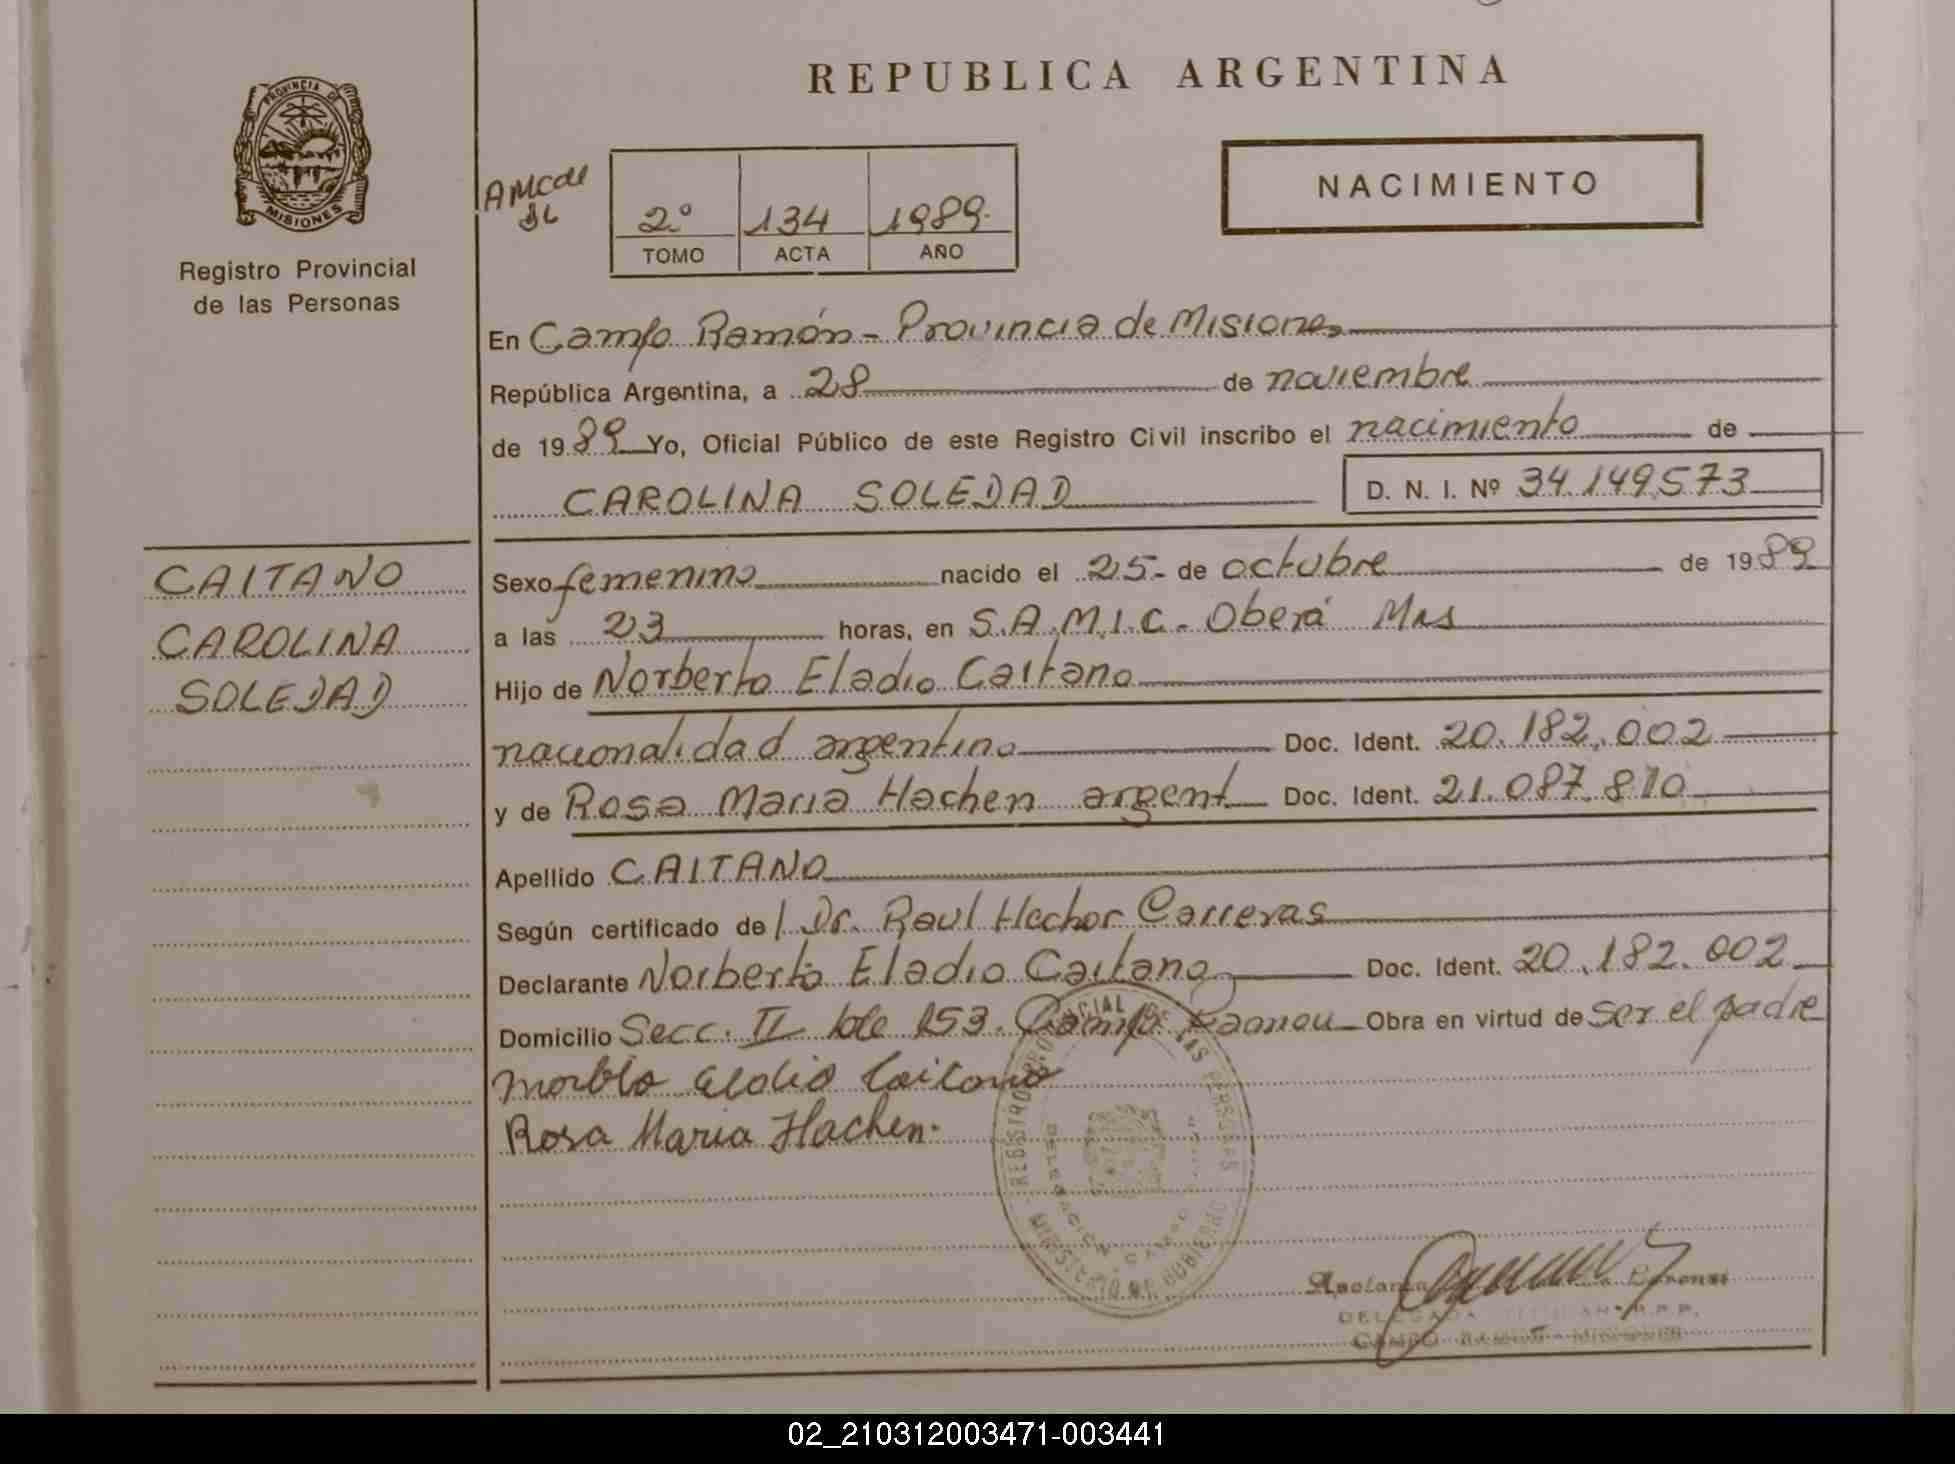 REPUBLICA ARGENTINA
PROVINCIA DE
MISIONES
Registro Provincial
de las Personas
NACIMIENTO
2º 134 1989
TOMO ACTA AÑO
En Campo Ramón - Provincia de Misiones
República Argentina, a 28 de noviembre
de 1989 Yo, Oficial Público de este Registro Civil inscribo el nacimiento de
CAROLINA SOLEDAD D. N. I. Nº 34.149.573
CAITANO
CAROLINA
SOLEDAD
Sexo femenino nacido el 25- de octubre de 1989
a las 23 horas, en S.A.M.I.C. - Oberá Mns
Hijo de Norberto Eladio Caitano
nacionalidad argentina Doc. Ident. 20.182.002
y de Rosa Maria Hachen argent Doc. Ident. 21.087.810
Apellido CAITANO
Según certificado del Dr. Raul Hector Carreras
Declarante Norberto Eladio Caitano Doc. Ident. 20.182.002
Domicilio Secc. II lote 153. Campo Ramon Obra en virtud de ser el padre
Rosa Maria Hachen.
REGISTRO PROVINCIAL DE LAS PERSONAS
MINISTERIO DE GOBIERNO
DELEGACION CAMPO
CAMPO RAMON - MISIONES
02_210312003471-003441